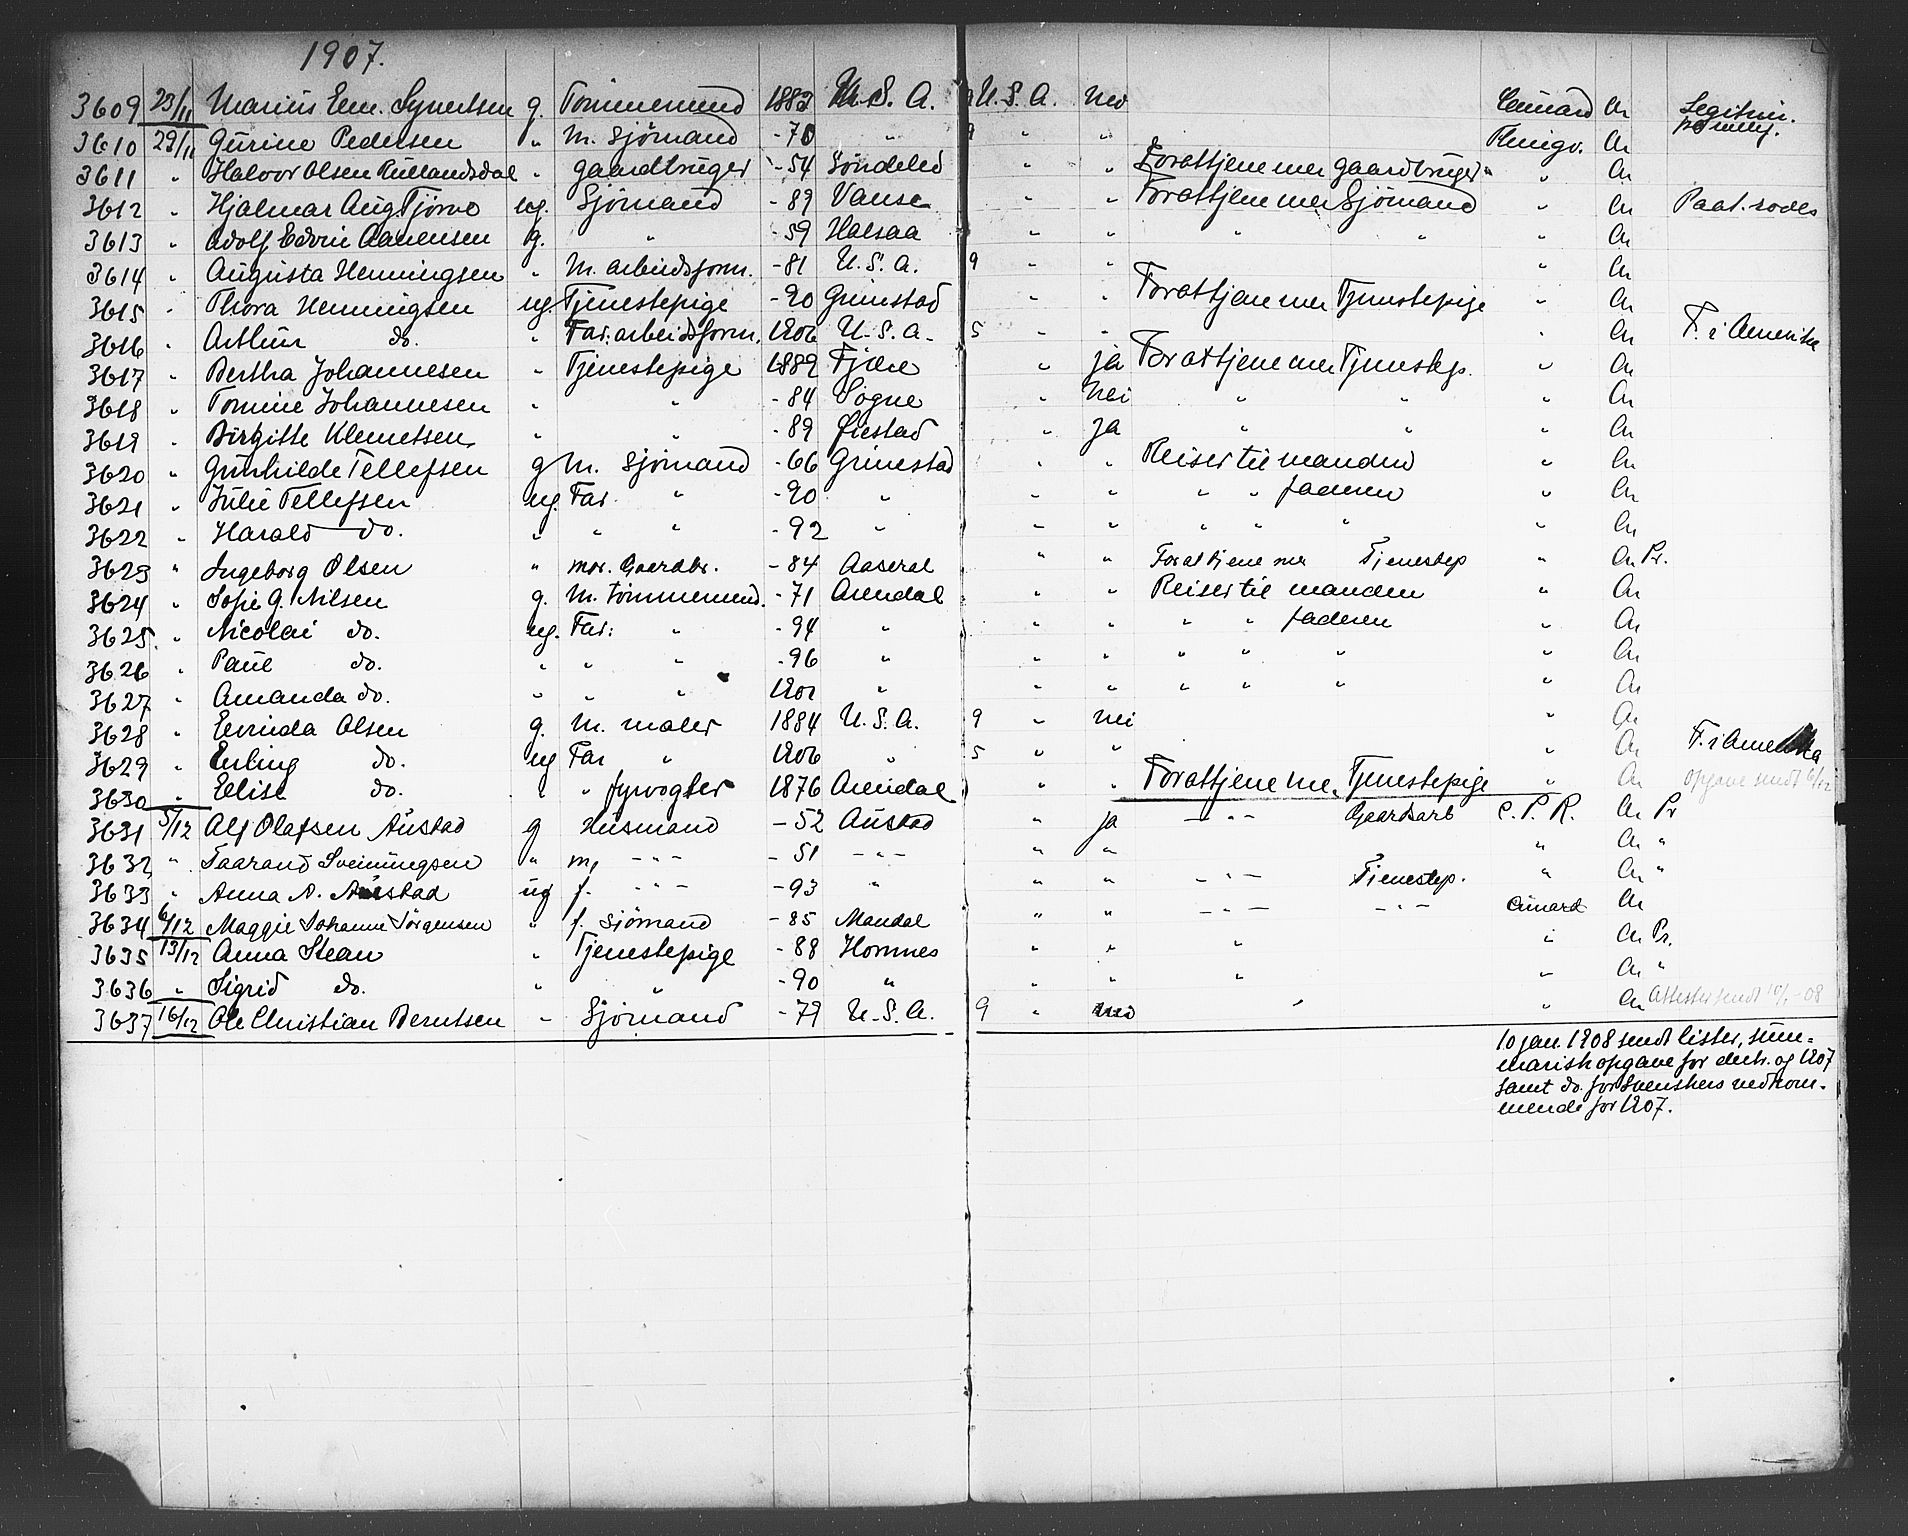 1907.
3609 23/11 Marius Em. Syvertsen g. Tømmermand 1882 U. S. A. 9 U. S. A. nei Cunard An Legitim. pr
3610 29/11 Gurine Pedersen " M. Sjömand -70 " 9 " " Kringv. An
3611 " Halvor Olsen Rullandsdal " gaardbruger -54 Söndeled " " For at tjene mer gaardbruger " " An
3612 " Hjalmar Aug Tjörve ug. Sjömand -89 Vanse " " For at tjene mer Sjömand " An Paat. rodes
3613 " Adolf Edvin Aanensen g. " -59 Halsaa " " " " " An
3614 " Augusta Henningsen " M. arbeidsform. -81 U. S. A. 9 " " " An
3615 " Thora Henningsen ug. Tjenestepige -90 Grimstad " " For at tjene mer Tjenestepige " An
3616 " Arthur do. " Far: arbeidsform. 1906 U. S. A. 5 " " " An F. i Amerika
3617 " Bertha Johannesen " Tjenestepige 1889 Fjære " ja For at tjene mer Tjenestep. " An
3618 " Tomine Johannesen " " -84 Søgne " nei " " " An
3619 " Birgitte Klemetsen " " -89 Øiestad " ja " " " An
3620 " Gunhilde Tellefsen g M. Sjömand -66 Grimestad " " Reiser til manden " An
3621 " Julie Tellefsen ug. Far. " -90 " " " " " faderen " An
3622 " Harald do. " " " -92 " " " " " " " An
3623 " Ingeborg Olsen " mor. Gaardbr. -84 Aaseral " " For at tjene mer Tjenestep " An Pr.
3624 " Sofie G. Nilsen g. M. tömmermand. -71 Arendal " " Reiser til manden " An
3625. " Nicolai do. ug. Far: " -94 " " " " " faderen " An
3626 " Paul do. " " " -96 " " " " " " " An
3627 " Amanda do. " " " 1901 " " " " " " " An
3628 " Evinda Olsen g. M. maler 1884 U. S. A. 9 " nei " An
3629 " Erling do. ug Far " 1906 " 5 " " " An F. i Amerika
3630 " Elise do. " " fyrvogter 1876 Arendal " " For at tjene mer Tjenestepige " An opgave sendt 6/12
3631 5/12 Alf Olafsen Austad g Husmand -52 Austad " ja - " - Gaardsarb C. P. R. An Pr
3632 " Taarand Sveinungsen " m, - " - -51 - " - " " " An "
3633 " Anna A. Austad ug f. - " - -93 " " " - " - Tjenestep. " An "
3634 6/12 Maggie Johanne Jörgensen " f. Sjömand -85 Mandal " " - " - - " - Cunard An
3635 13/12 Anna Stean " Tjenestepige -88 Hornnes " " " " An Pr.
3636 " Sigrid do. " " -90 " " " " " An "
3637 16/12 Ole Christian Berntsen " Sjömand -79 U. S. A. 9 " nei " " An Attester sendt 10/1 -08
10 jan. 1908 sendt lister, sum=
marisk opgave for decbr. og 1907
samt do. for Svenskers vedkom=
mende for 1907.